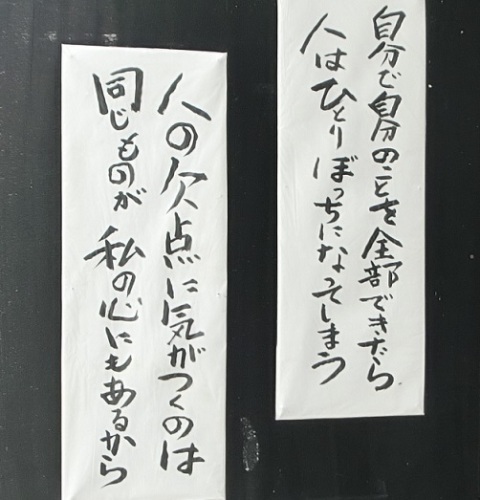 自分で自分のことを全部できたら
人はひとりぼっちになってしまう
人の欠点に気がつくのは
同じものが私の心にもあるから